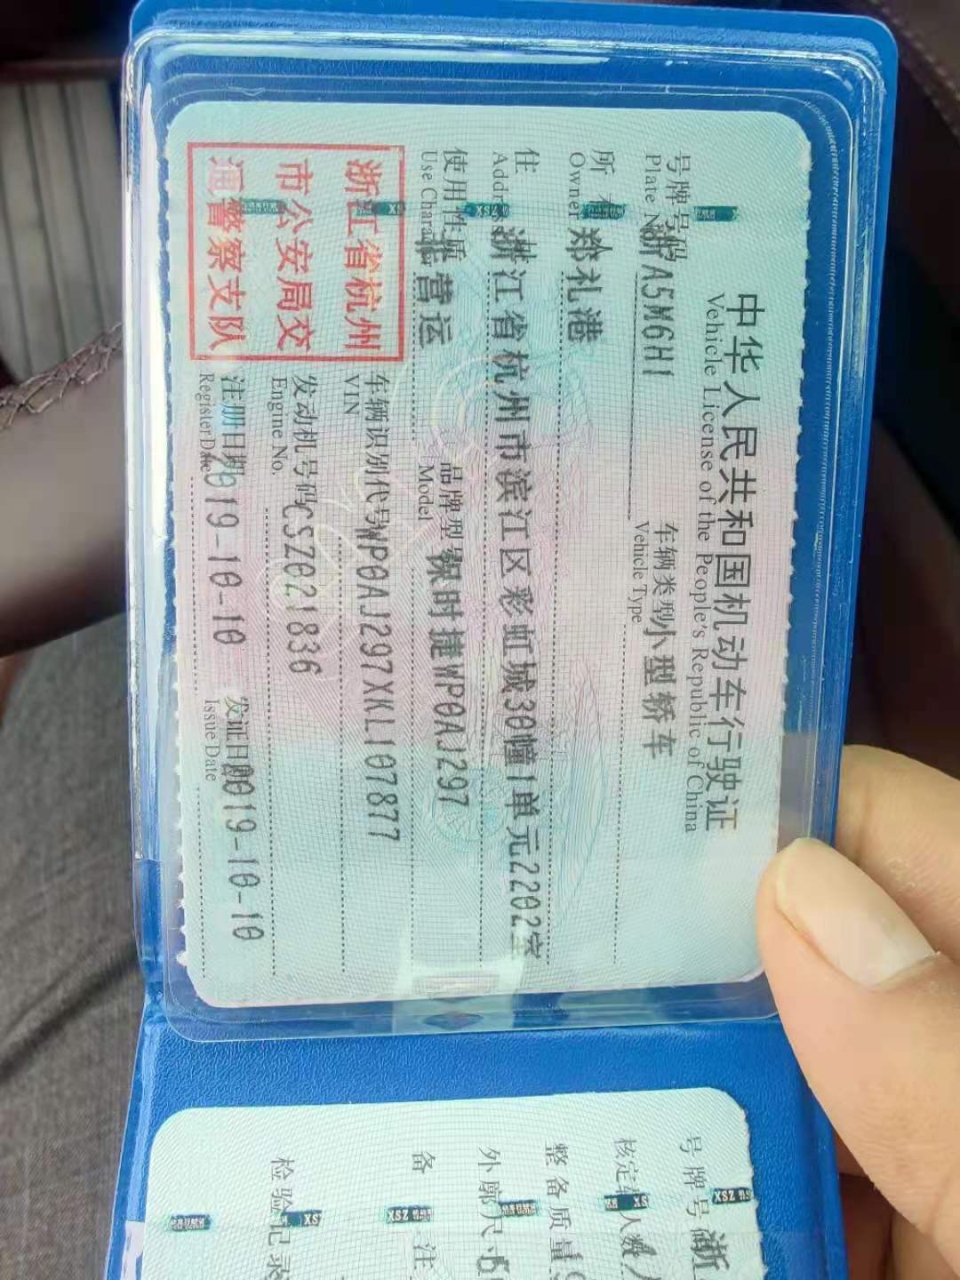 中华人民共和国机动车行驶证
Vehicle License of the People's Republic of China
号牌号码 浙A5M6H1 车辆类型 小型轿车
Plate No. Vehicle Type
所有人 郑礼港
Owner
住址 浙江省杭州市滨江区彩虹城30幢1单元2202室
Address
使用性质 非营运 品牌型号 保时捷WP0AJ297
Use Character Model
浙江省杭州
市公安局交
通警察支队
车辆识别代号 WP0AJ297XKL107877
VIN
发动机号码 CSZ021836
Engine No.
注册日期 2019-10-10 发证日期 2019-10-10
Register Date Issue Date
号牌号 浙
核定 人数
整备质量
外廓尺寸
备 注
检验记录